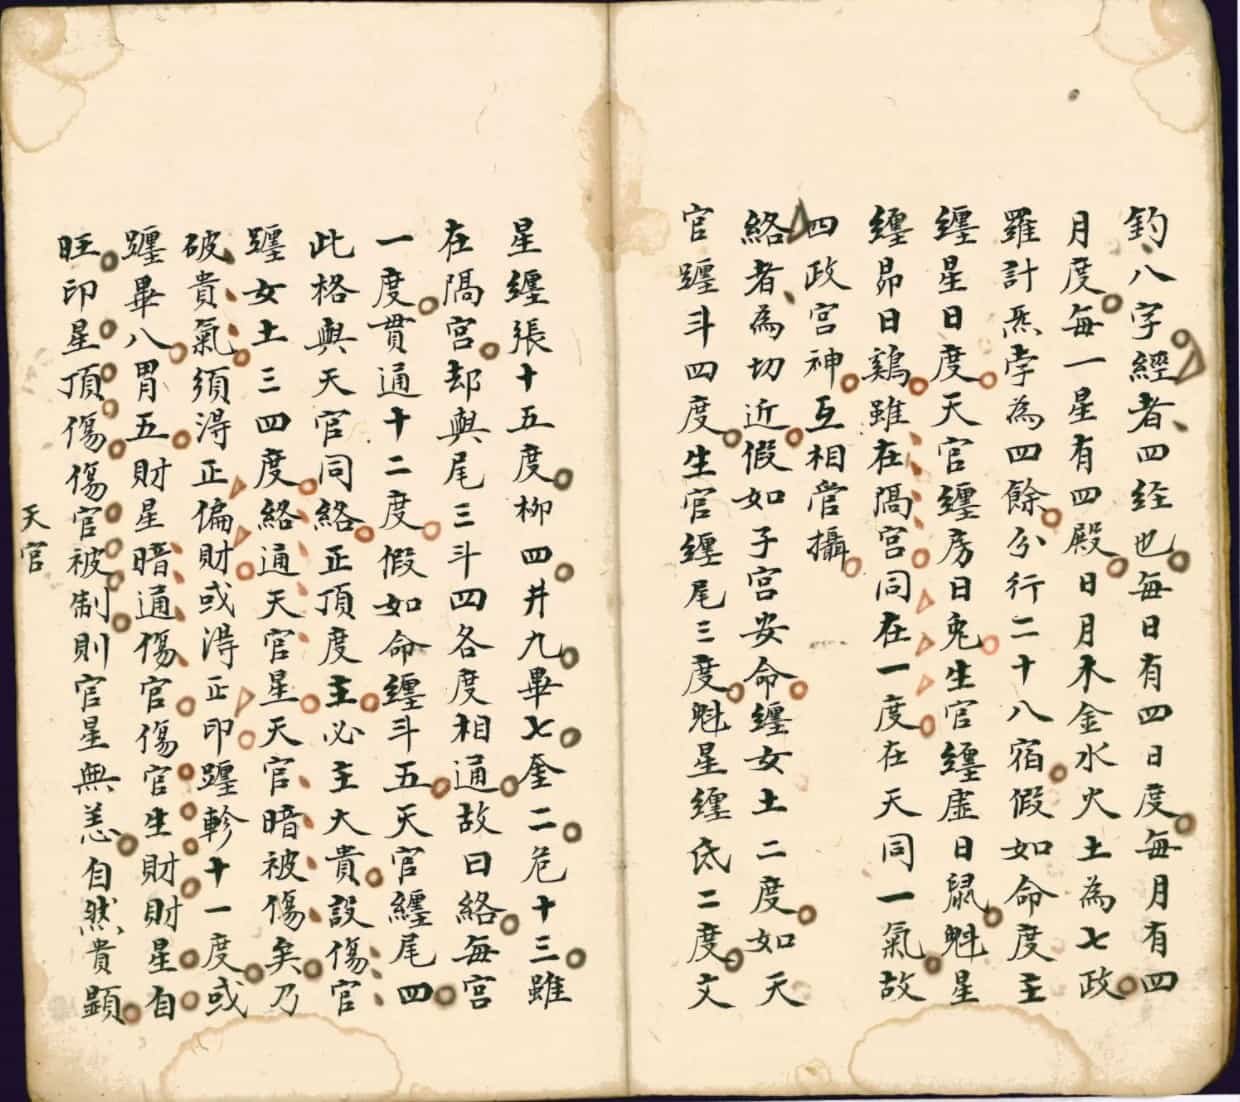 鈞八字經者四经也每日有四日度每月有四
月度每一星有四殿日月木金水火土為七政
羅計炁孛為四餘分行二十八宿假如命度主
纏星日度天官纏房日兎生官纏虛日鼠魁星
纏昴日鷄雖在隔宮同在一度在天同一氣故
四政宮神互相管攝
絡者為切近假如子宮安命纏女土二度如天
官躔斗四度生官纏尾三度魁星纏氐二度文
星纏張十五度柳四井九畢七奎二危十三雖
在隔宮却與尾三斗四各度相通故曰絡每宮
一度贯通十二度假如命纏斗五天官纏尾四
此格與天官同絡正頂度主必主大貴設傷官
躔女土三四度絡通天官星天官暗被傷矣乃
破貴氣須淂正偏財或淂正印躔軫十一度或
躔畢八胃五財星暗通傷官傷官生財財星自
旺印星頂傷傷官被制則官星無恙自然貴顕
天官